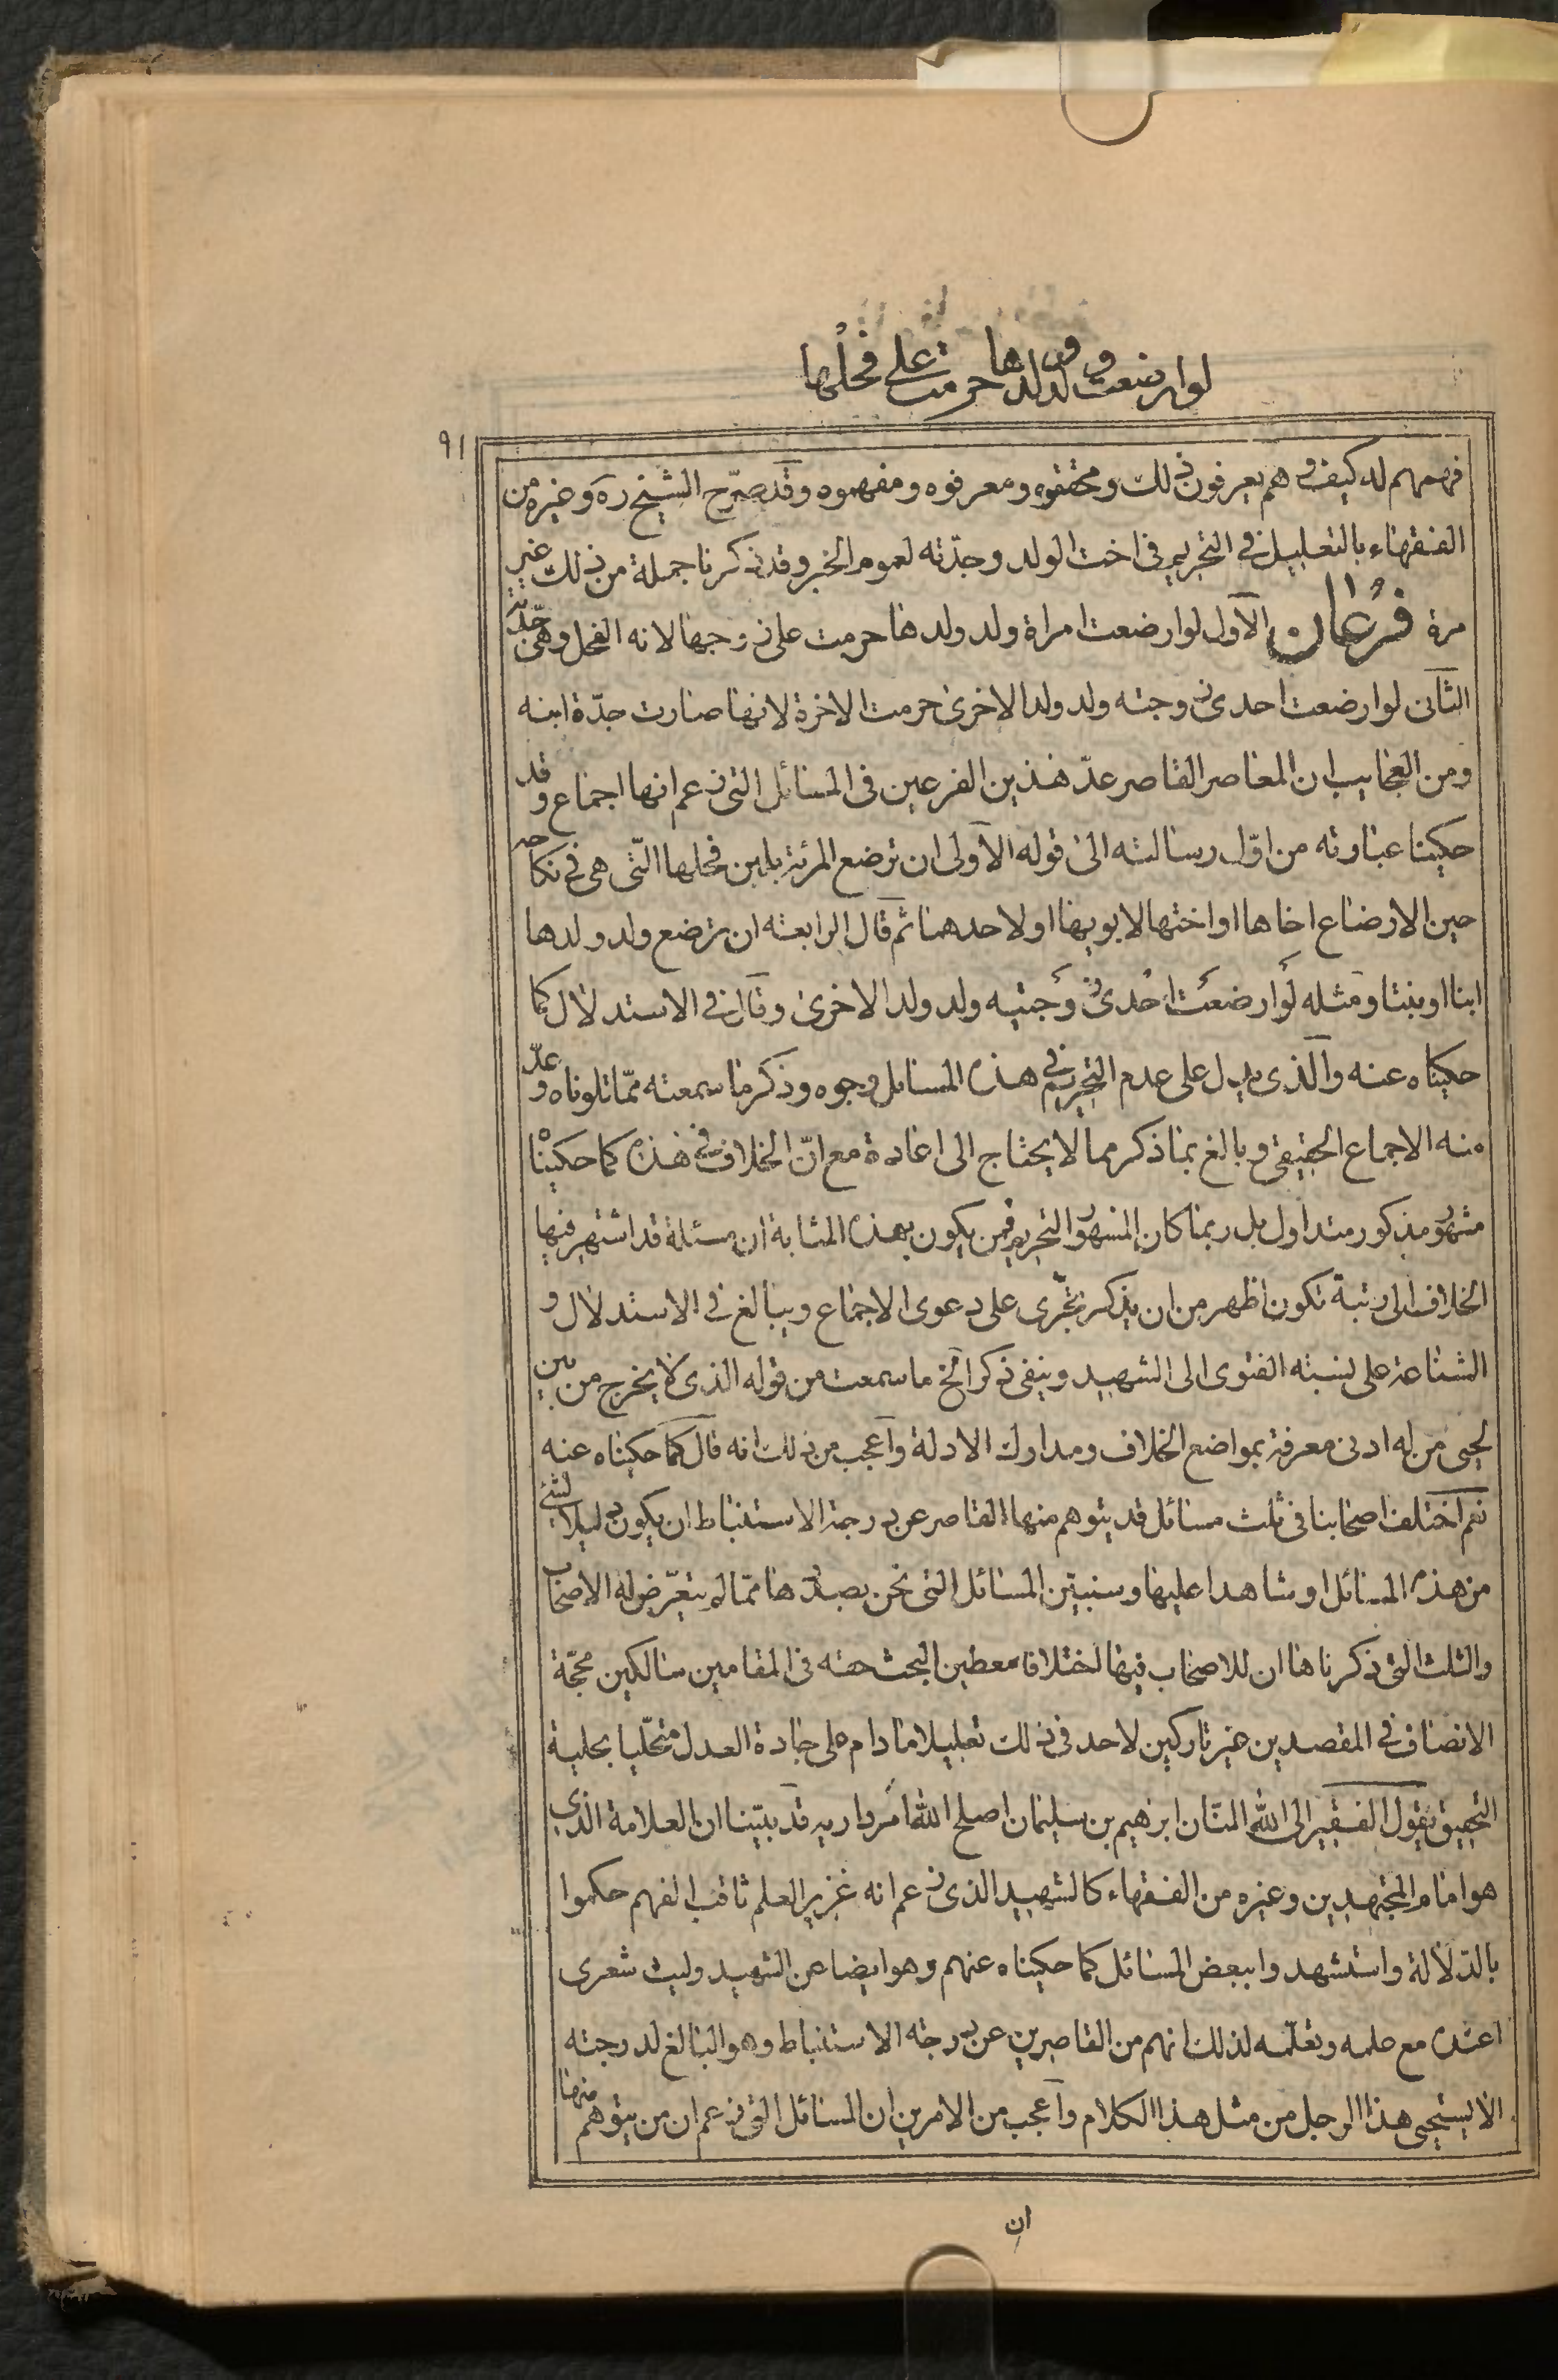 لو ارضعت ولد ولدها حرمت على فحلها
٩١
فهمهم له كيف وهم يعرفون ذلك ومحققوه ومعرفوه ومفهموه وقد صرّح الشيخ ره وغيره من
الفقهاء بالتعليل في التحريم في اخت الولد وجدّته لعموم الخبر وقد ذكرنا جملة من ذلك غير
مرة فرعان الأول لو ارضعت امراة ولد ولدها حرمت على زوجها لانه الفحل وهي جدّته
الثاني لو ارضعت احدى زوجته ولد ولد الاخرى حرمت الاخرة لانها صارت جدّة ابنه
ومن العجايب ان المعاصر القاصر عدّ هذين الفرعين في المسائل التي زعم انها اجماع وقد
حكينا عبارته من اوّل رسالته الى قوله الاولى ان ترضع المرئة بلبن فحلها التي هي في نكاحه
حين الارضاع اخاها او اختها لابويها او لاحدهما ثم قال الرابعة ان ترضع ولد ولدها
ابنا او بنتا ومثله لو ارضعت احدى زوجتيه ولد ولد الاخرى وقال في الاستدلال كما
حكيناه عنه والذي يدل على عدم التحريم في هذه المسائل وجوه وذكر ما سمعته ممّا تلوناه وعدّ
منه الاجماع الحقيقي وبالغ بما ذكر مما لا يحتاج الى اعادة مع انّ الخلاف في هذه كما حكينا
مشهور مذكور متداول بل ربما كان المشهور التحريم فمن يكون بهذه المثابة ان مسئلة قد اشتهر فيها
الخلاف الى رتبة تكون اظهر من ان يذكر يتجرّى على دعوى الاجماع ويبالغ في الاستدلال و
الشناعة على نسبته الفتوى الى الشهيد وينفي ذكر الخ ما سمعت من قوله الذي لا يخرج من بين
لحيى من له ادنى معرفة بمواضع الخلاف ومدارك الادلة واعجب من ذلك انه قال كما حكيناه عنه
نعم اختلف اصحابنا في ثلث مسائل قد يتوهم منها القاصر عن درجة الاستنباط ان يكون دليلا لشئ
من هذه المسائل او شاهدا عليها وسنبيّن المسائل التي نحن بصددها ممّا لم يتعرّض له الاصحاب
والثلث التي ذكرناها ان للاصحاب فيها اختلافا معطين البحث حقه في المقامين سالكين محجّة
الانصاف في المقصدين غير تاركين لاحد في ذلك تعليلا ما دام على جادة العدل متحلّيا بحلية
التحقيق يقول الفقير الى الله المنّان ابرهيم بن سليمان اصلح الله امر داريه قد بيّنا ان العلامة الذي
هو امام المجتهدين وغيره من الفقهاء كالشهيد الذي زعم انه غزير العلم ثاقب الفهم حكموا
بالدّلالة واستشهدوا ببعض المسائل كما حكيناه عنهم وهو ايضا عن الشهيد وليت شعرى
اعنده مع علمه وتعلّمه لذلك انهم من القاصرين عن درجة الاستنباط وهو البالغ لدرجته
الا يستحيي هذا الرجل من مثل هذا الكلام واعجب من الامرين ان المسائل التي زعم ان من يتوهم منها
ان